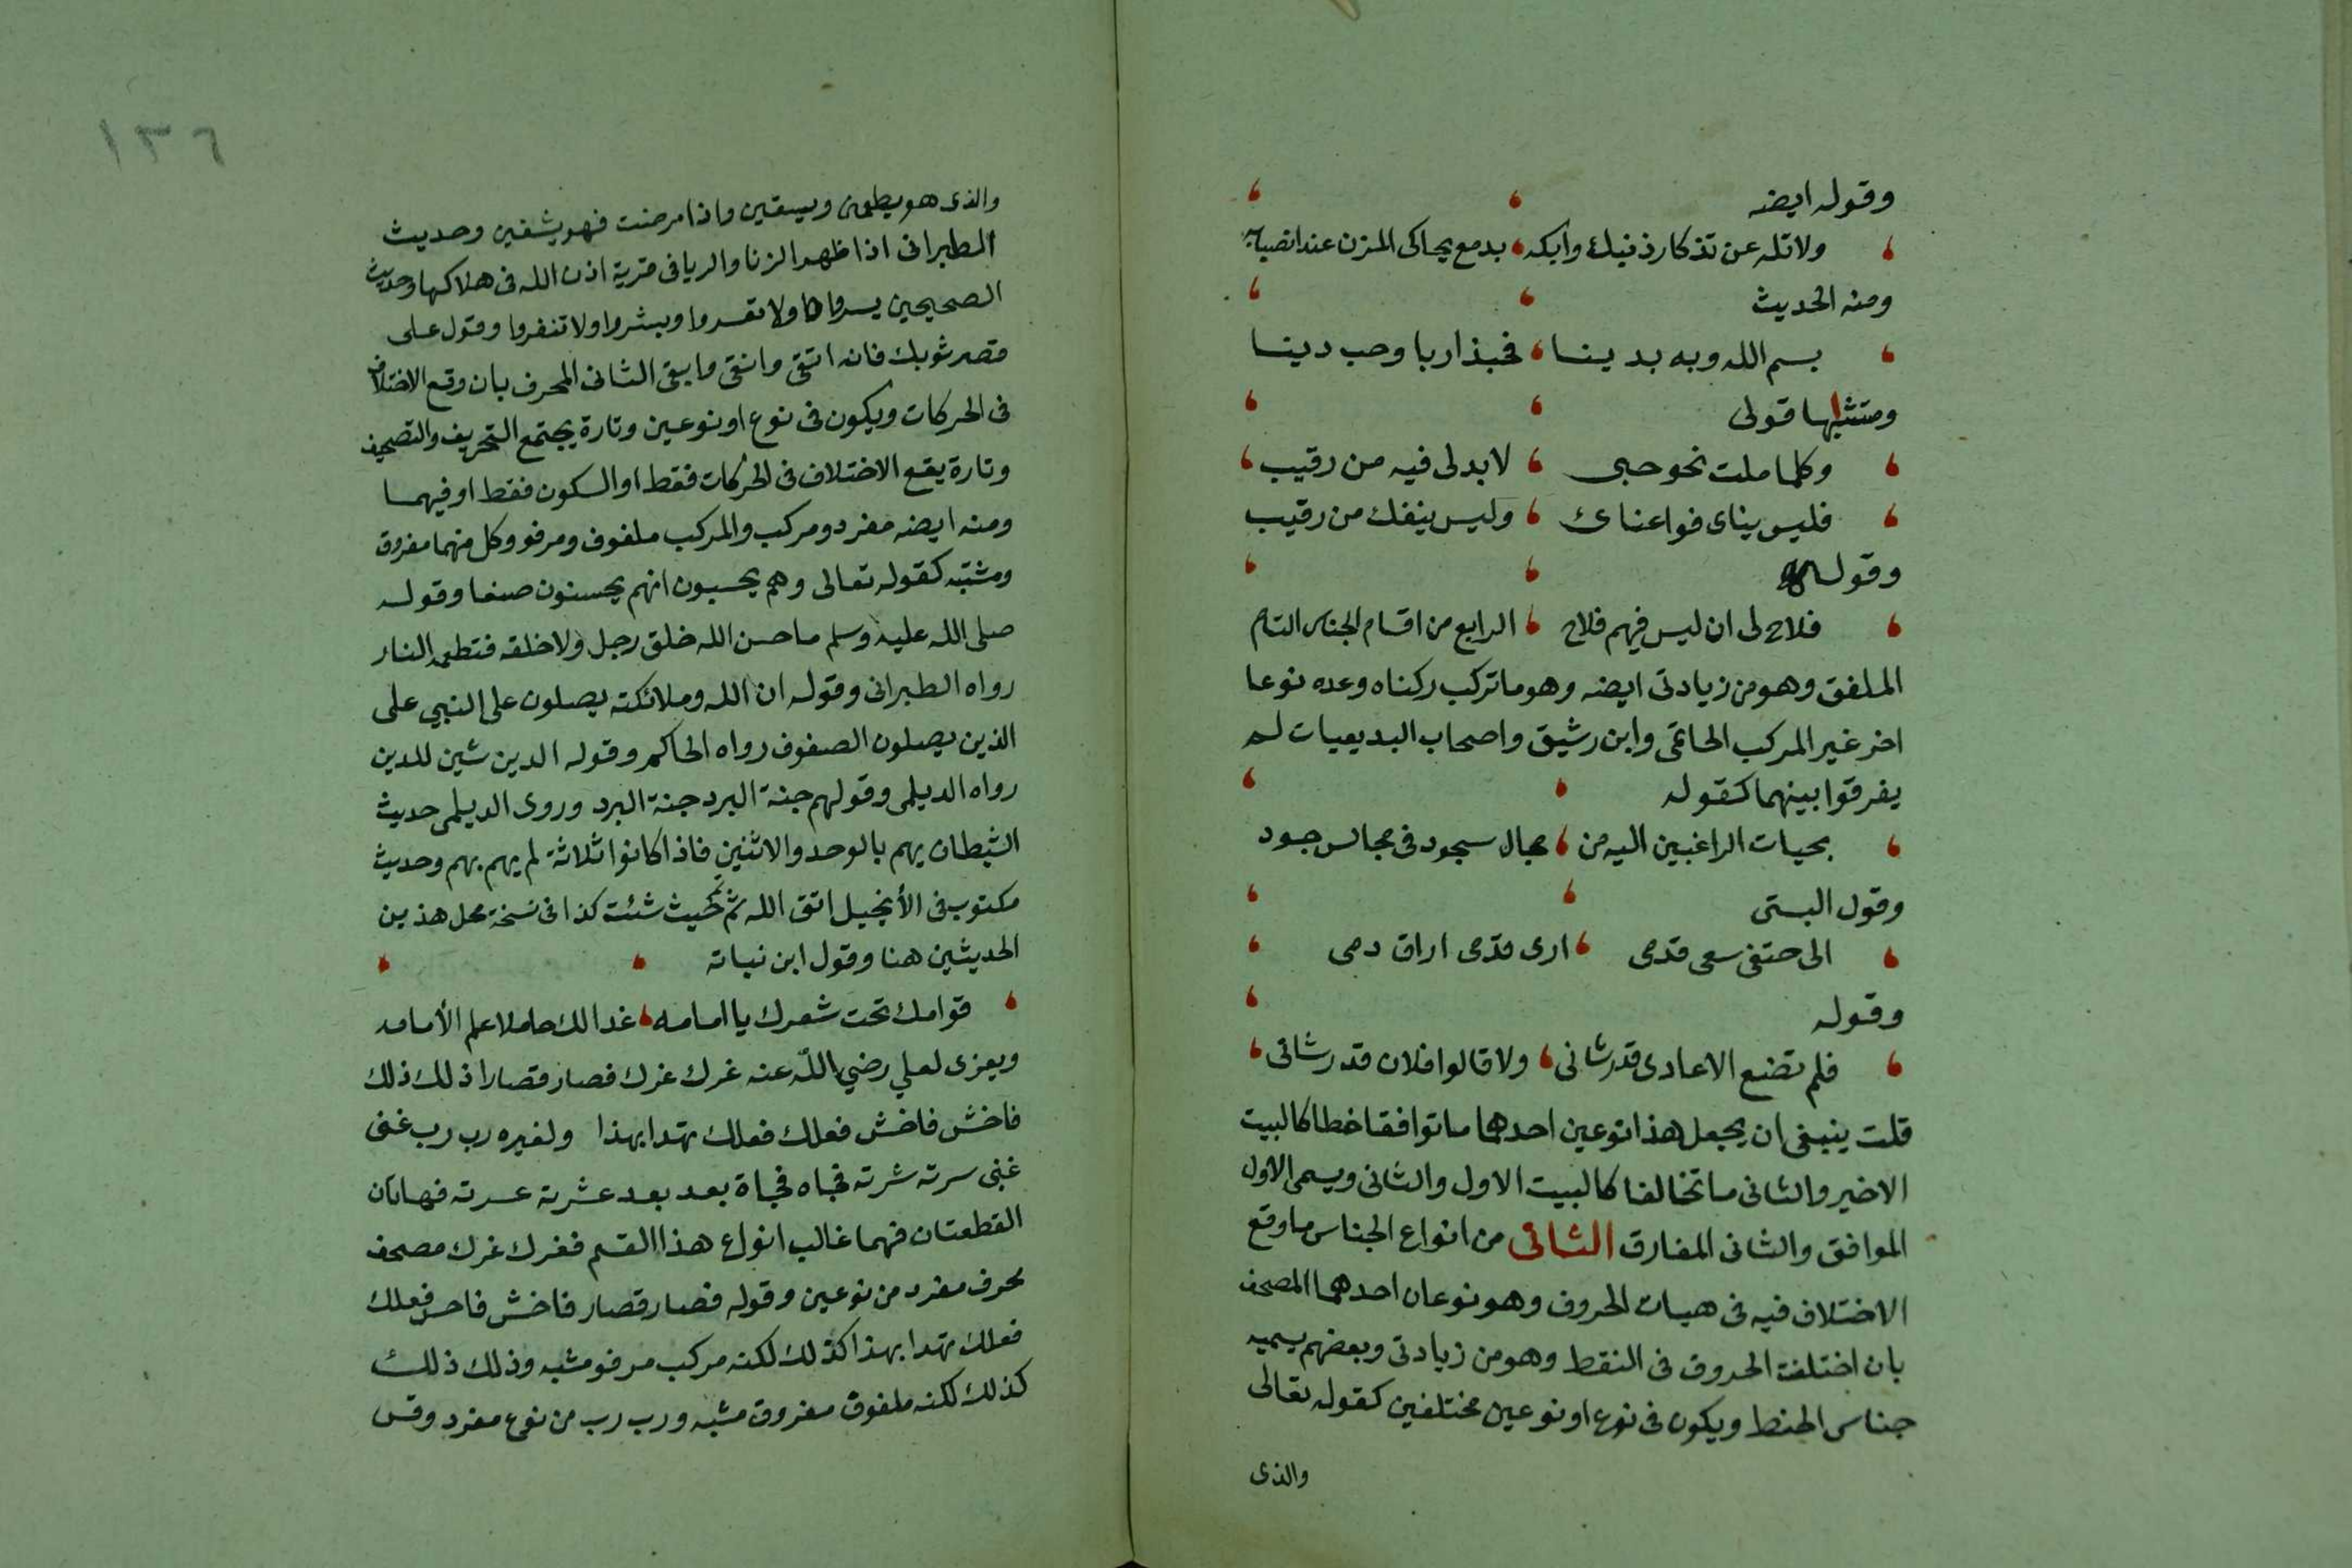 وقوله ايضه
ولاتله عن تذكار ذنبك وابكه بدمع يحاكى المزن عند انصبابه
ومنه الحديث
بسم الله وبه بدينا فحبذا ربا وحب دينا
قولى
وكلما ملت نحو حبى لابد لى فيه من رقيب
فليس يناى فواعناى وليس ينفك من رقيب
وقوله
فلاح لى ان ليس فيهم فلاح الرابع من اقسام الجناس التام
الملفق وهو من زيادتى ايضه وهو ما تركب ركناه وعده نوعا
اخر غير المركب الحاتمى وابن رشيق واصحاب البديعيات لم
يفرقوا بينهما كقوله
الراغبين اليه من مجال سجود فى مجالس جود
وقول البستى
الى حتفى سعى قدمى ارى قدمى اراق دمى
وقوله
فلم تضع الاعادى قدر شانى ولا قالوا فلان قد رشانى
قلت ينبغى ان يجعل هذا نوعين احدهما ما توافقا خطا كالبيت
الاخير والثانى ما تخالفا كالبيت الاول والثانى ويسمى الاول
الموافق والثانى المفارق الثانى من انواع الجناس ما وقع
الاختلاف فيه فى هيات الحروف وهو نوعان احدهما المصحف
بان اختلفت الحروف فى النقط وهو من زيادتى وبعضهم يسميه
جناس الخط ويكون فى نوع او نوعين مختلفين كقوله تعالى
والذى
١٣٦
والذى هو يطعمنى ويسقين واذا مرضت فهو يشفين وحديث
الطبرانى اذا ظهر الزنا والربا فى قرية اذن الله فى هلاكها وحديث
الصحيحين يسروا ولا تعسروا وبشروا ولا تنفروا وقول على
قصر ثوبك فانه اتقى وانقى وابقى الثانى المحرف بان وقع الاختلاف
فى الحركات ويكون فى نوع او نوعين وتارة يجتمع التحريف والتصحيف
وتارة يقع الاختلاف فى الحركات فقط او السكون فقط او فيهما
ومنه ايضه مفرد ومركب والمركب ملفوف ومرفو وكل منهما مفروق
ومشتبه كقوله تعالى وهم يحسبون انهم يحسنون صنعا وقوله
صلى الله عليه وسلم ما حسن الله خلق رجل ولا خلقه فتطعمه النار
رواه الطبرانى وقوله ان الله وملائكته يصلون على النبي على
الذين يصلون الصفوف رواه الحاكم وقوله الدين شين للدين
رواه الديلمى وقولهم جبة البرد جنة البرد وروى الديلمى حديث
الشيطان يهم بالوحد والاثنين فاذا كانوا ثلاثة لم يهم بهم وحديث
مكتوب فى الأنجيل اتق الله ثم نم حيث شئت كذا فى نسخة محل هذين
الحديثين هنا وقول ابن نباته
قوامك تحت شعرك يا امامه غدا لك حاملا علم الأمامه
ويعزى لعلي رضي الله عنه غرك عزك فصار قصار اذ لك ذلك
فاخش فاخش فعلك فعلك تهدا بهذا ولغيره رب رب غنى
غبى سرته شرته فجاه فجاة بعد بعد عشرته عسرته فهاتان
القطعتان فهما غالب انواع هذا القسم فغرك عزك مصحف
محرف مفرد من نوعين وقوله فصار قصار فاخش فاحش فعلك
فعلك تهدا بهذا كذلك لكنه مركب مرفو مشبه وذلك ذلك
كذلك لكنه ملفوق مفروق مشبه ورب رب من نوع مفرد وقس